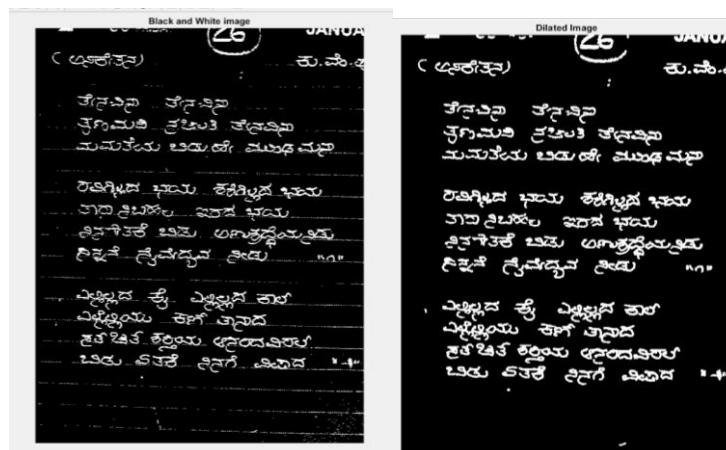 Black and White image
26 JANUA
ಕು.ವೆಂ.
ತೇನವಿನಾ ತೇನವಿನಾ
ತೃಣಮಪಿ ನಚಲತಿ ತೇನವಿನಾ
ಮಮತೆಯ ಬಿಡು ಹೇ ಮೂಢ ಮನಾ
ರವಿಗಿಲ್ಲದ ಭಯ ಶಶಿಗಿಲ್ಲದ ಭಯ
ತಾರಾ ನಿಬಹಕೆ ಇರದ ಭಯ
ನಿನಗೇತಕೆ ಬಿಡು ಅಣುಶ್ರದ್ಧೆಯನಿಡು
ನಿನ್ನನೆ ನೈವೇದ್ಯವ ನೀಡು "೧"
ಎಲ್ಲಿಲ್ಲದ ಎಲ್ಲಿಲ್ಲದ ಕಾಲ
ಎಲ್ಲೆಲ್ಲಿಯು ಕಾಣ್ ತಾನಾದ
ಆನಂದವಿರಲ್
ಬಿಡು ಏತಕೆ ನಿನಗೆ ವಿಷಾದ
Dilated Image
26 JANUA
ಕು.ವೆಂ.
ತೇನವಿನಾ ತೇನವಿನಾ
ತೃಣಮಪಿ ನಚಲತಿ ತೇನವಿನಾ
ಮಮತೆಯ ಬಿಡು ಹೇ ಮೂಢ ಮನಾ
ರವಿಗಿಲ್ಲದ ಭಯ ಶಶಿಗಿಲ್ಲದ ಭಯ
ತಾರಾ ನಿಬಹಕೆ ಇರದ ಭಯ
ನಿನಗೇತಕೆ ಬಿಡು ಅಣುಶ್ರದ್ಧೆಯನಿಡು
ನಿನ್ನನೆ ನೈವೇದ್ಯವ ನೀಡು "೧"
ಎಲ್ಲಿಲ್ಲದ ಎಲ್ಲಿಲ್ಲದ ಕಾಲ
ಎಲ್ಲೆಲ್ಲಿಯು ಕಾಣ್ ತಾನಾದ
ಆನಂದವಿರಲ್
ಬಿಡು ಏತಕೆ ನಿನಗೆ ವಿಷಾದ